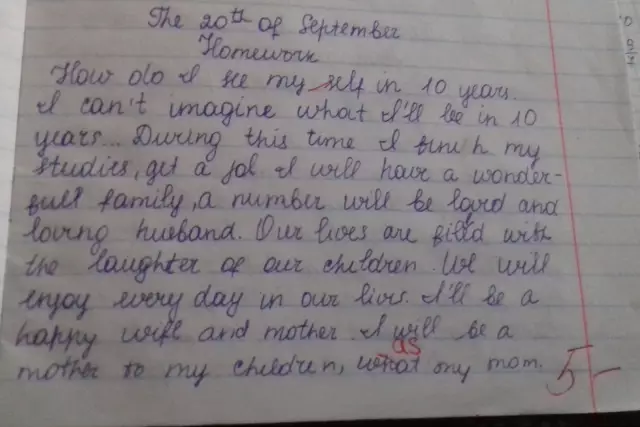 The 20th of September
Homework
How do I see my self in 10 years.
I can't imagine what I'll be in 10
years... During this time I finish my
studies, get a job. I will have a wonder-
full family, a number will be lovd and
loving husband. Our lives are filld with
the laughter of our children. We will
enjoy every day in our lives. I'll be a
happy wife and mother. I will be a
as
mother to my children, what my mom.
5-